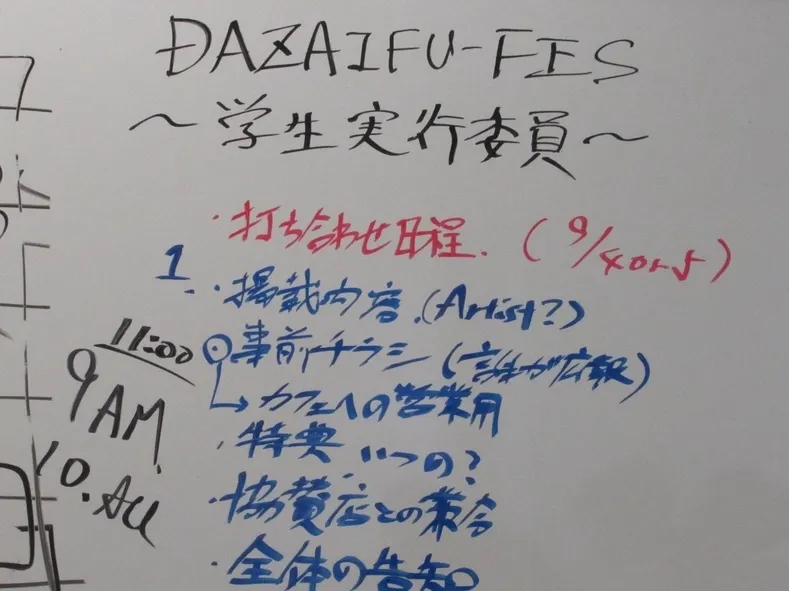 DAZAIFU-FES
～学生実行委員～
・打ち合わせ日程. (9/4 or 5)
1.
・掲載内容.(Artist?)
11:00
事前チラシ(誰が広報)
→カフェへの営業用
9 AM
・特典 いつの?
10. All
・協賛店との兼合
・全体の告知